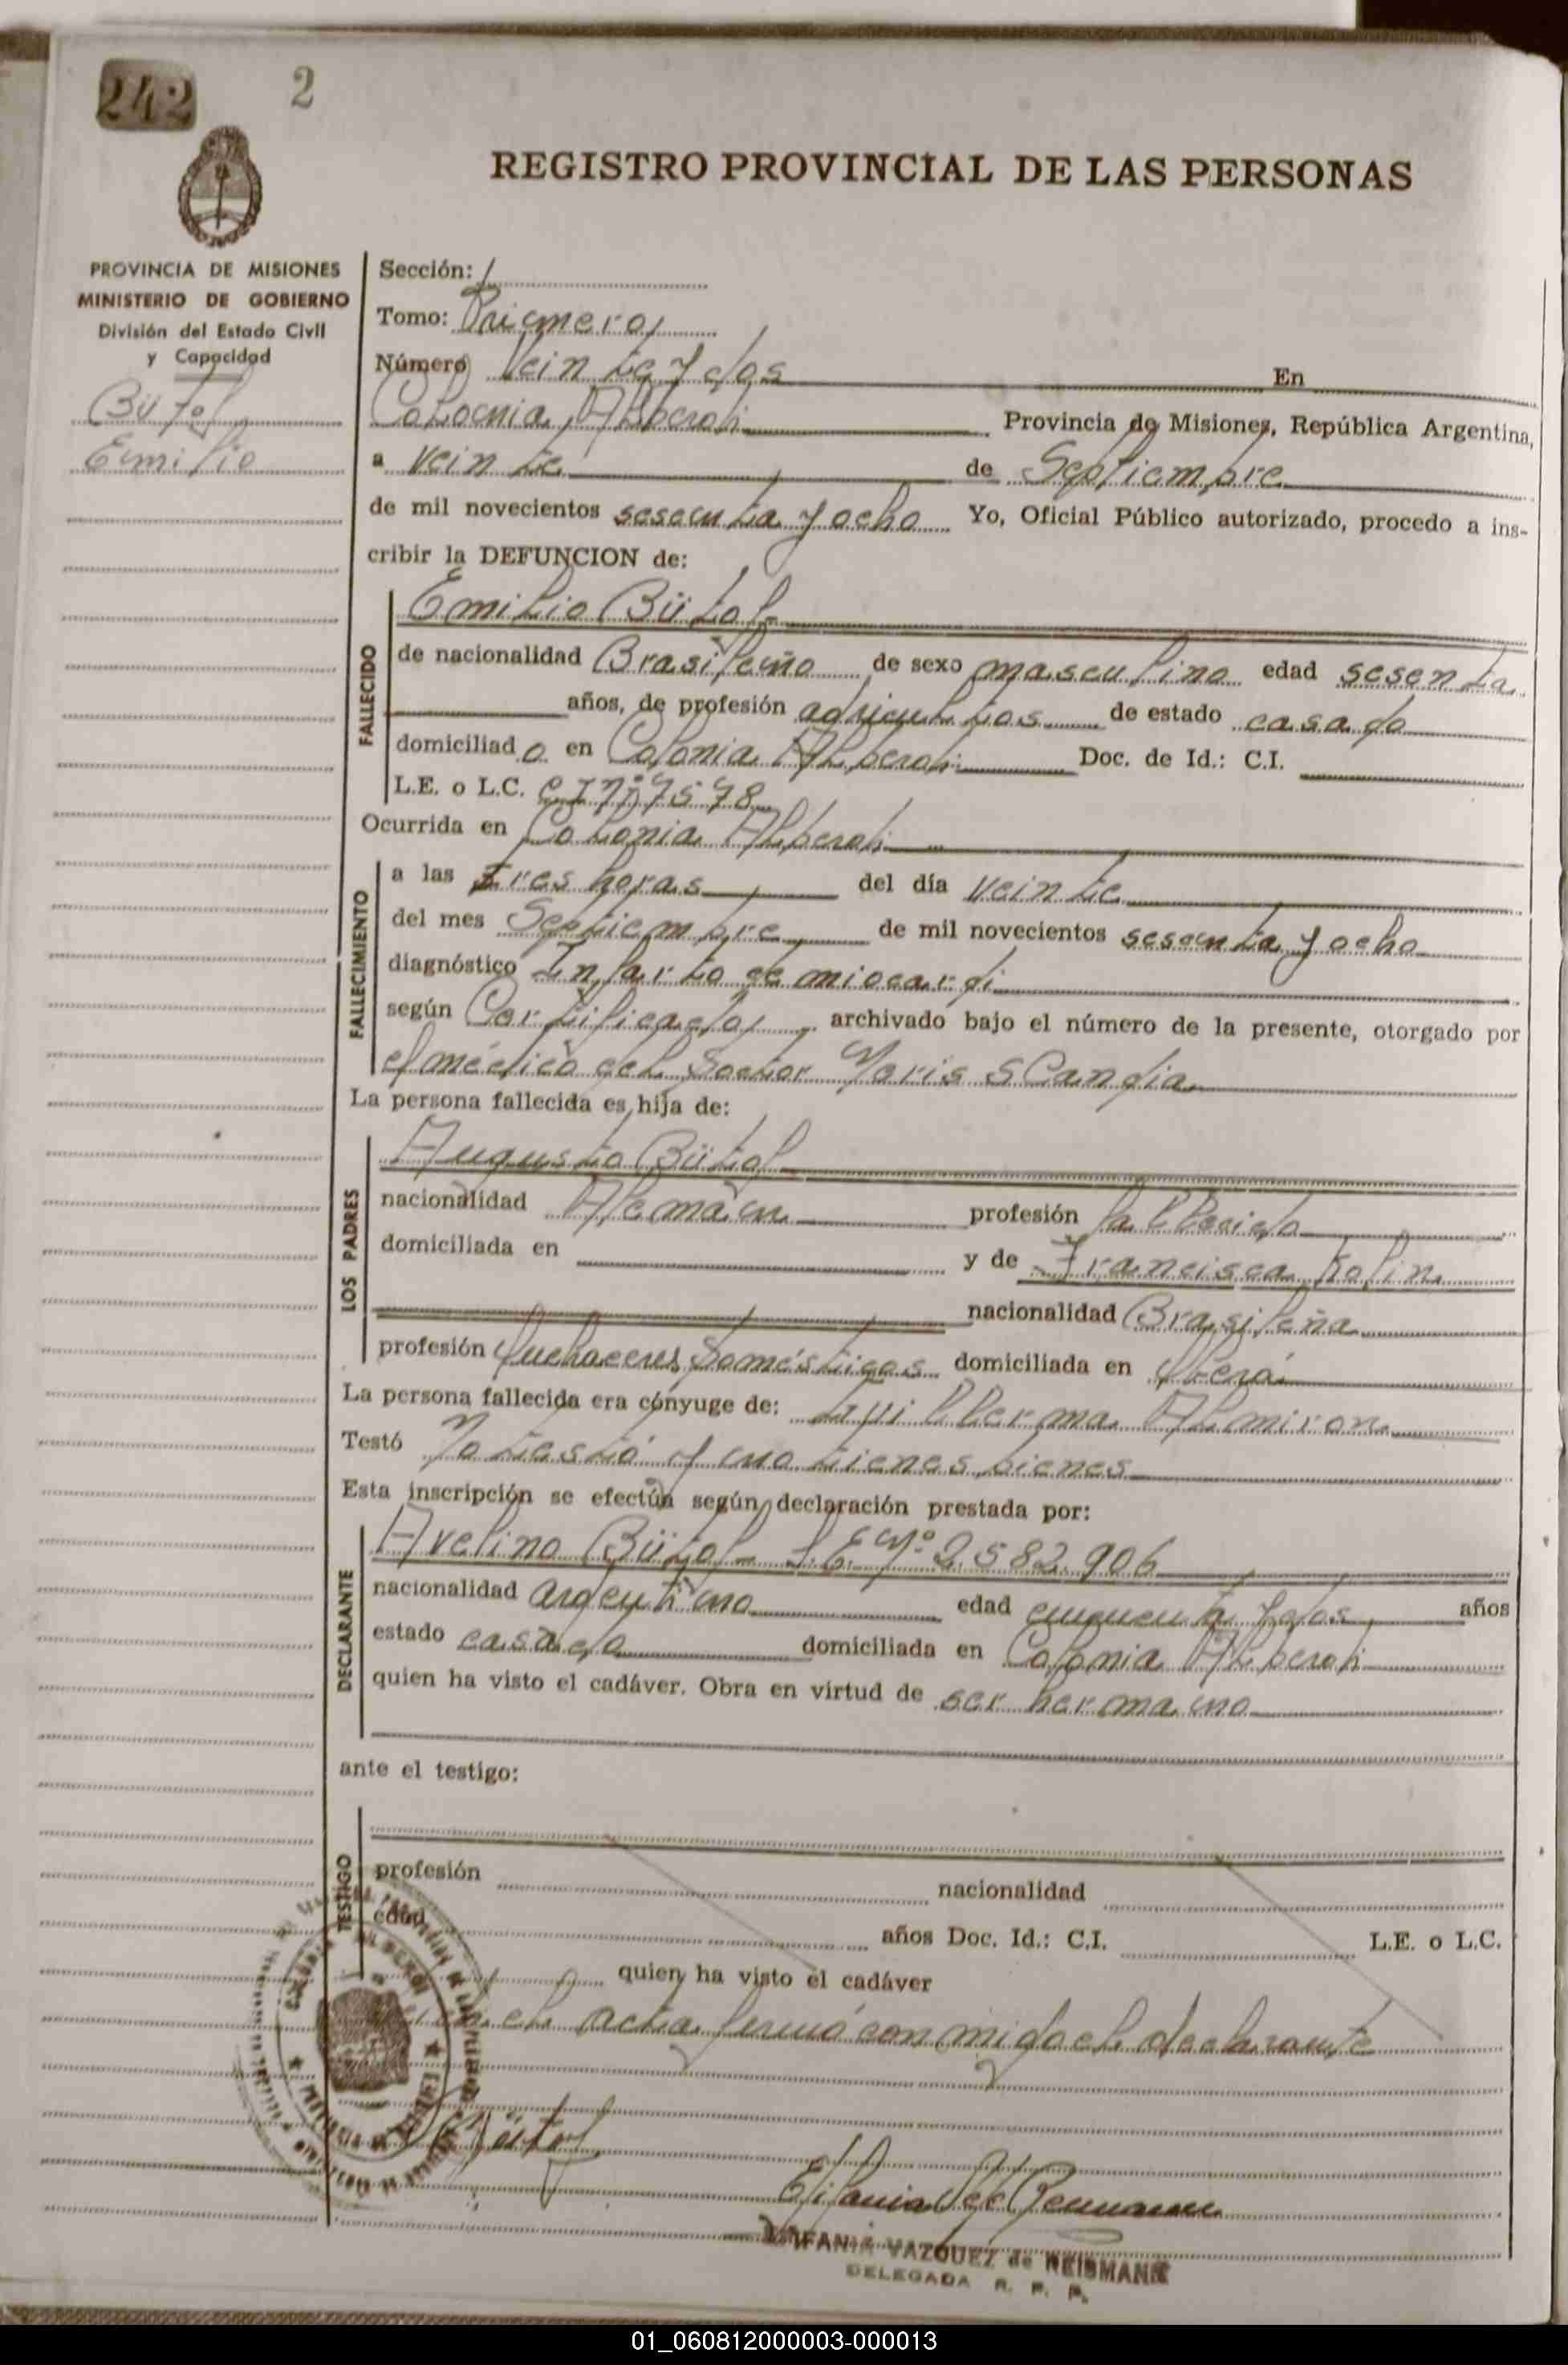 242 2
REGISTRO PROVINCIAL DE LAS PERSONAS
PROVINCIA DE MISIONES
MINISTERIO DE GOBIERNO
División del Estado Civil
y Capacidad
Bütof
Emilio
Sección: 1
Tomo: Primero
Número Veinte y dos En
Colocnia Alberdi Provincia de Misiones, República Argentina,
a Veinte de Septiembre
de mil novecientos sesenta y ocho Yo, Oficial Público autorizado, procedo a ins-
cribir la DEFUNCION de:
FALLECIDO
Emilio Bütof
de nacionalidad Brasileño de sexo masculino edad sesenta
años, de profesión de estado casado
domiciliado en Colonia Alberdi Doc. de Id.: C.I.
L.E. o L.C. C I Nº 7578
Ocurrida en Colonia Alberdi
FALLECIMIENTO
a las Tres horas del día veinte
del mes Septiembre de mil novecientos sesenta y ocho
diagnóstico Infarto de miocardi
según Certificado archivado bajo el número de la presente, otorgado por
el médico del Doctor Scandia
La persona fallecida es hija de:
LOS PADRES
Augusto Bütof
nacionalidad Alemán profesión fallecido
domiciliada en y de Francisca
nacionalidad Brasileña
profesión Quehaceres Domésticos domiciliada en Oberá
La persona fallecida era cónyuge de: Almiron
Testó No testó y no tienes bienes
Esta inscripción se efectúa según declaración prestada por:
DECLARANTE
Avelino Bütof L.E. Nº 2.582.906
nacionalidad argentino edad cincuenta y dos años
estado casado domiciliada en Colonia Alberdi
quien ha visto el cadáver. Obra en virtud de ser hermano
ante el testigo:
TESTIGO
profesión nacionalidad
edad años Doc. Id.: C.I. L.E. o L.C.
quien ha visto el cadáver
el acta firmó conmigo el declarante
Bütof
EPIFANIA VAZQUEZ de REISMANN
DELEGADA R. P. P.
01_060812000003-000013